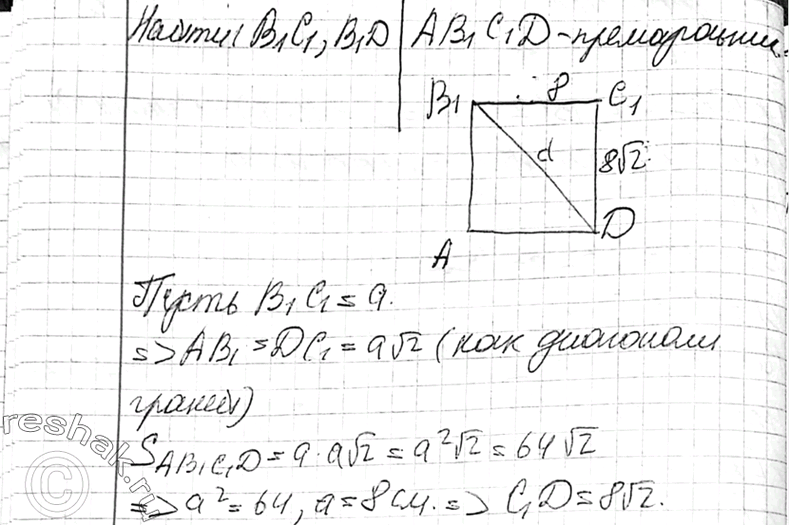 Найти: B₁C₁, B₁D
AB₁C₁D - прямоугольник.
B₁ 8 C₁
d
8√2
A D
Пусть B₁C₁ = a.
=> AB₁ = DC₁ = a√2 (как диагонали
граней)
S_AB₁C₁D = a · a√2 = a²√2 = 64√2
=> a² = 64, a = 8 см. => C₁D = 8√2.
© reshak.ru